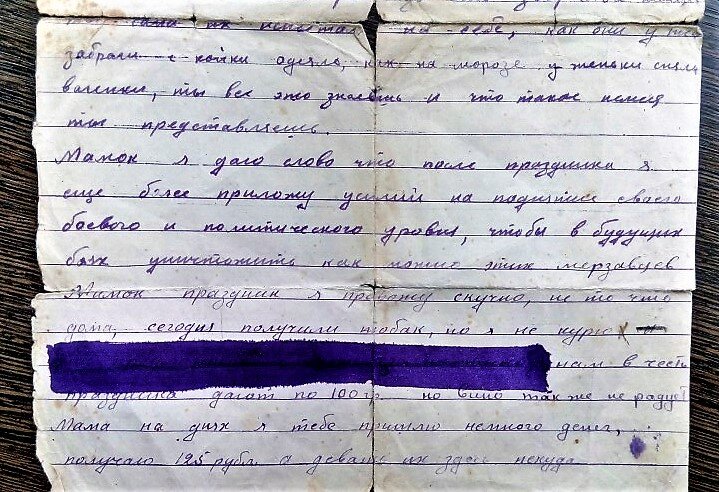 сама их испытал на себе, как они у тебя
забрали с койки одеяло, как на морозе у женьки сняли
валенки, ты все это знаешь и что такое немец
ты представляешь.
Мамок я даю слово что после праздника я
еще более приложу усилий на поднятие своего
боевого и политического уровня, чтобы в будущих
боях уничтожить как можно этих мерзавцев
Мамок праздник я провожу скучно, не то что
дома, сегодня получили табак, но я не курю
нам в честь
праздника дают по 100 гр. но вино так же не радует
Мама на днях я тебе пришлю немного денег,
получаю 125 рубл. а девать их здесь некуда